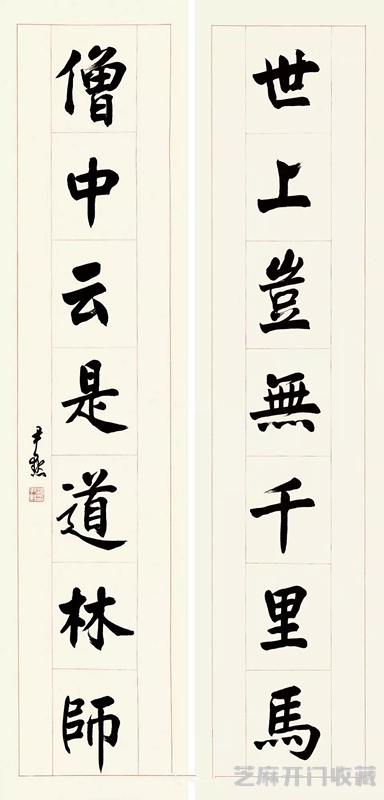 世上豈無千里馬
僧中云是道林師
尹默
芝麻开门收藏